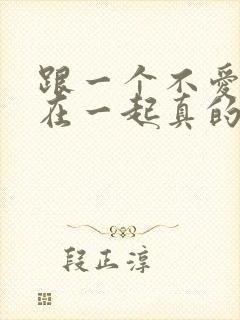 跟一个不爱
在一起真的
段正淳